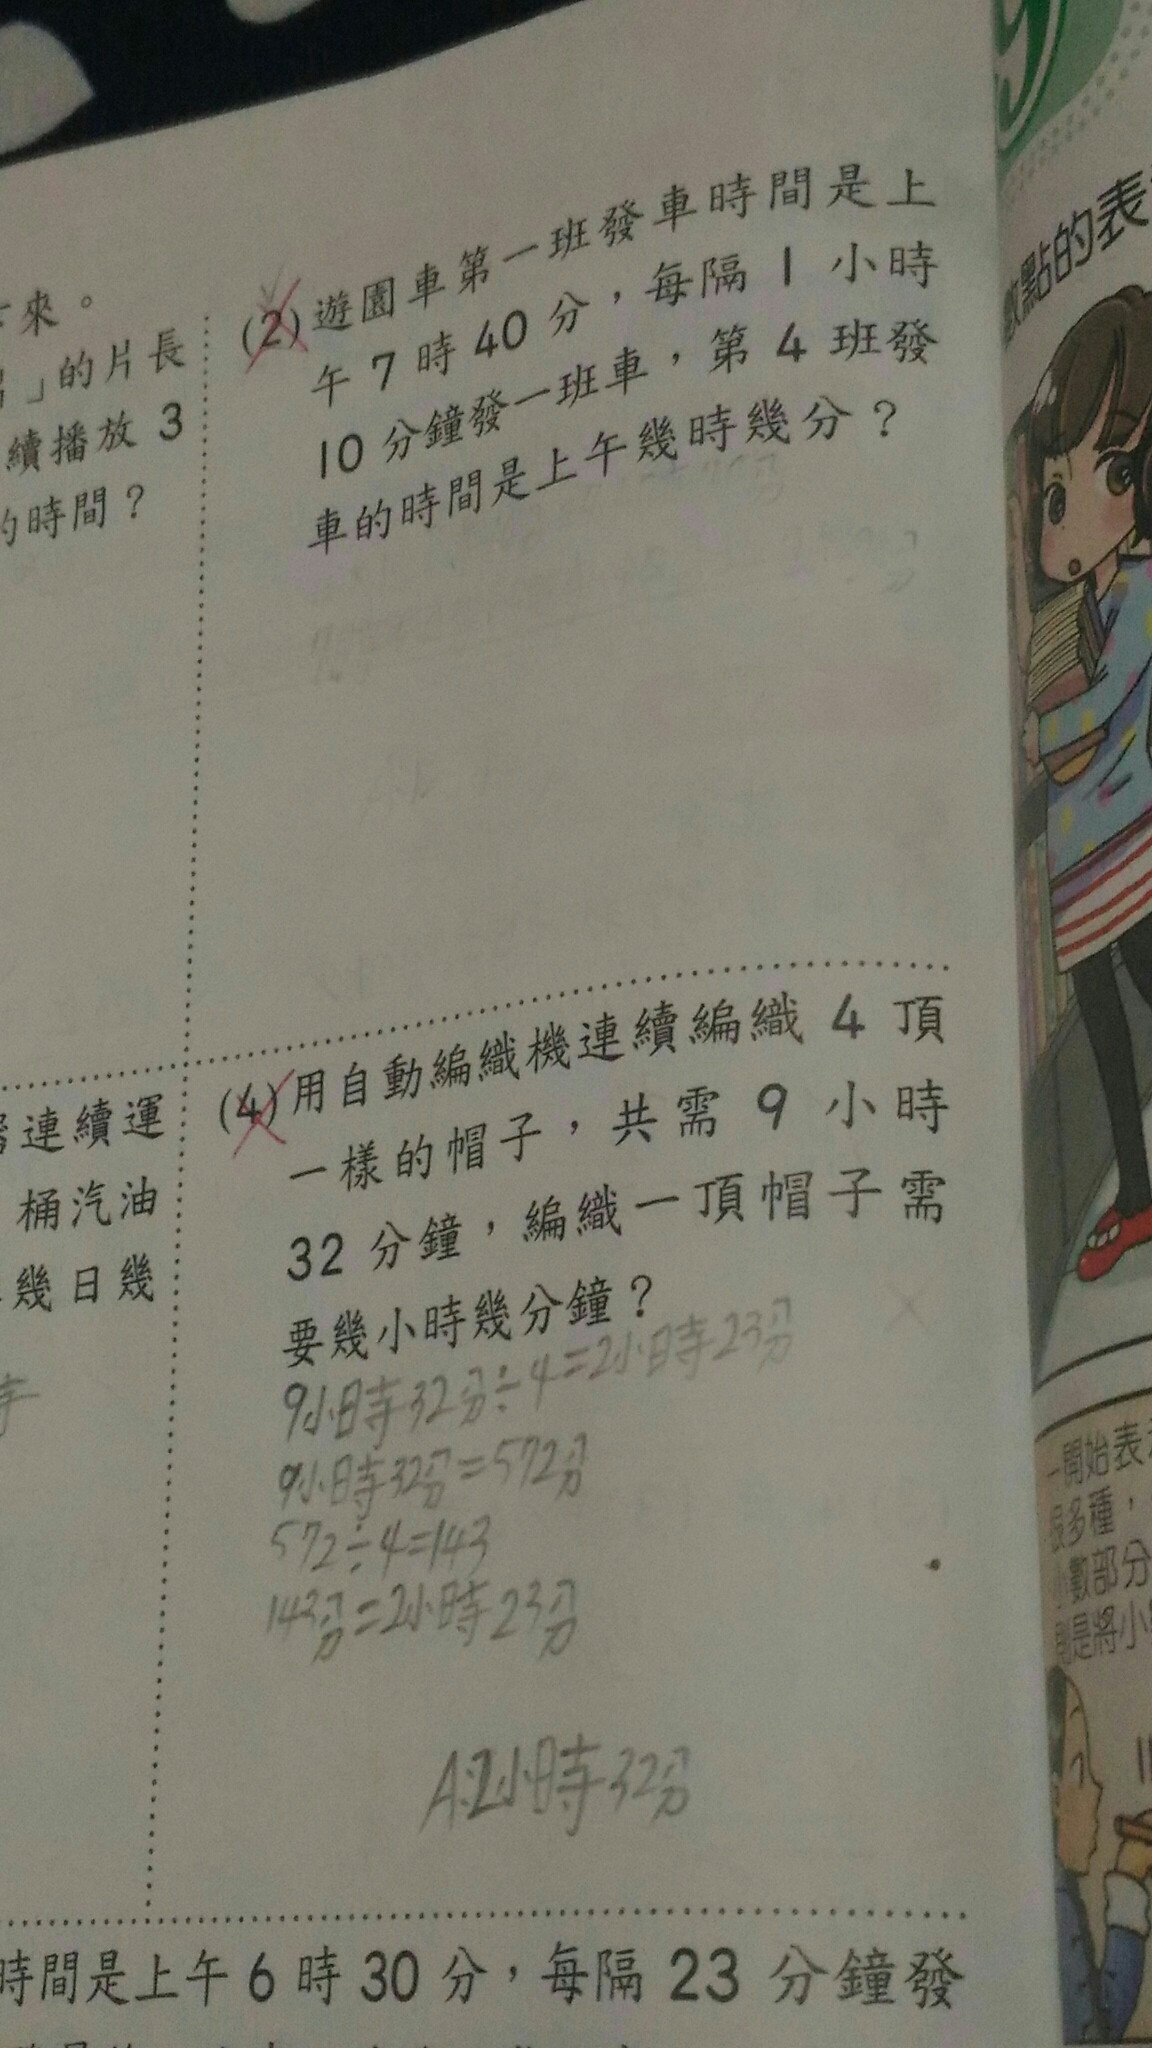 來。
」的片長
續播放 3
的時間？
(2) 遊園車第一班發車時間是上
午 7 時 40 分，每隔 1 小時
10 分鐘發一班車，第 4 班發
車的時間是上午幾時幾分？
連續運
桶汽油
幾日幾
(4) 用自動編織機連續編織 4 頂
一樣的帽子，共需 9 小時
32 分鐘，編織一頂帽子需
要幾小時幾分鐘？
9小時32分÷4=2小時23分
9小時32分=572分
572÷4=143
143分=2小時23分
A:2小時32分
時間是上午 6 時 30 分，每隔 23 分鐘發
數點的表
一開始表
很多種，
小數部分
則是將小